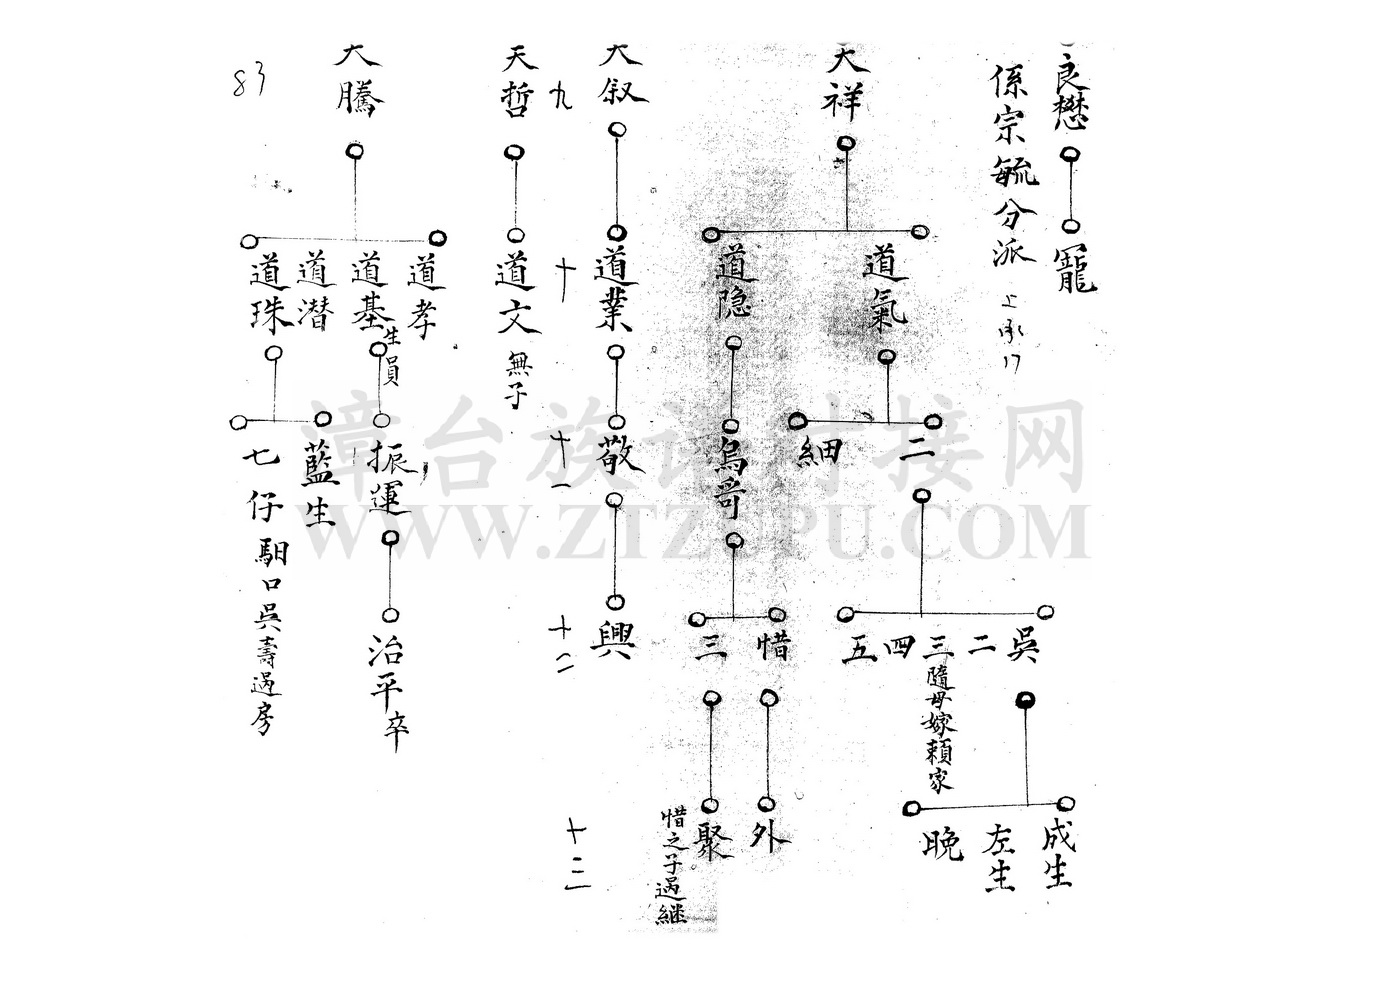 良懋
寵
係宗毓分派
上承17
大祥
道氣
道隐
二
細
烏哥
吳
二
三
四
五
隨母嫁賴家
惜
三
成生
左生
晚
外
聚
惜之子過継
大叙
道業
敬
興
九
十
十一
十二
十三
天哲
道文
無子
大騰
道孝
道基
生員
道潜
道珠
振運
藍生
七仔
馹口吳壽過房
治平卒
83
漳台族谱对接网
WWW.ZTZUPU.COM